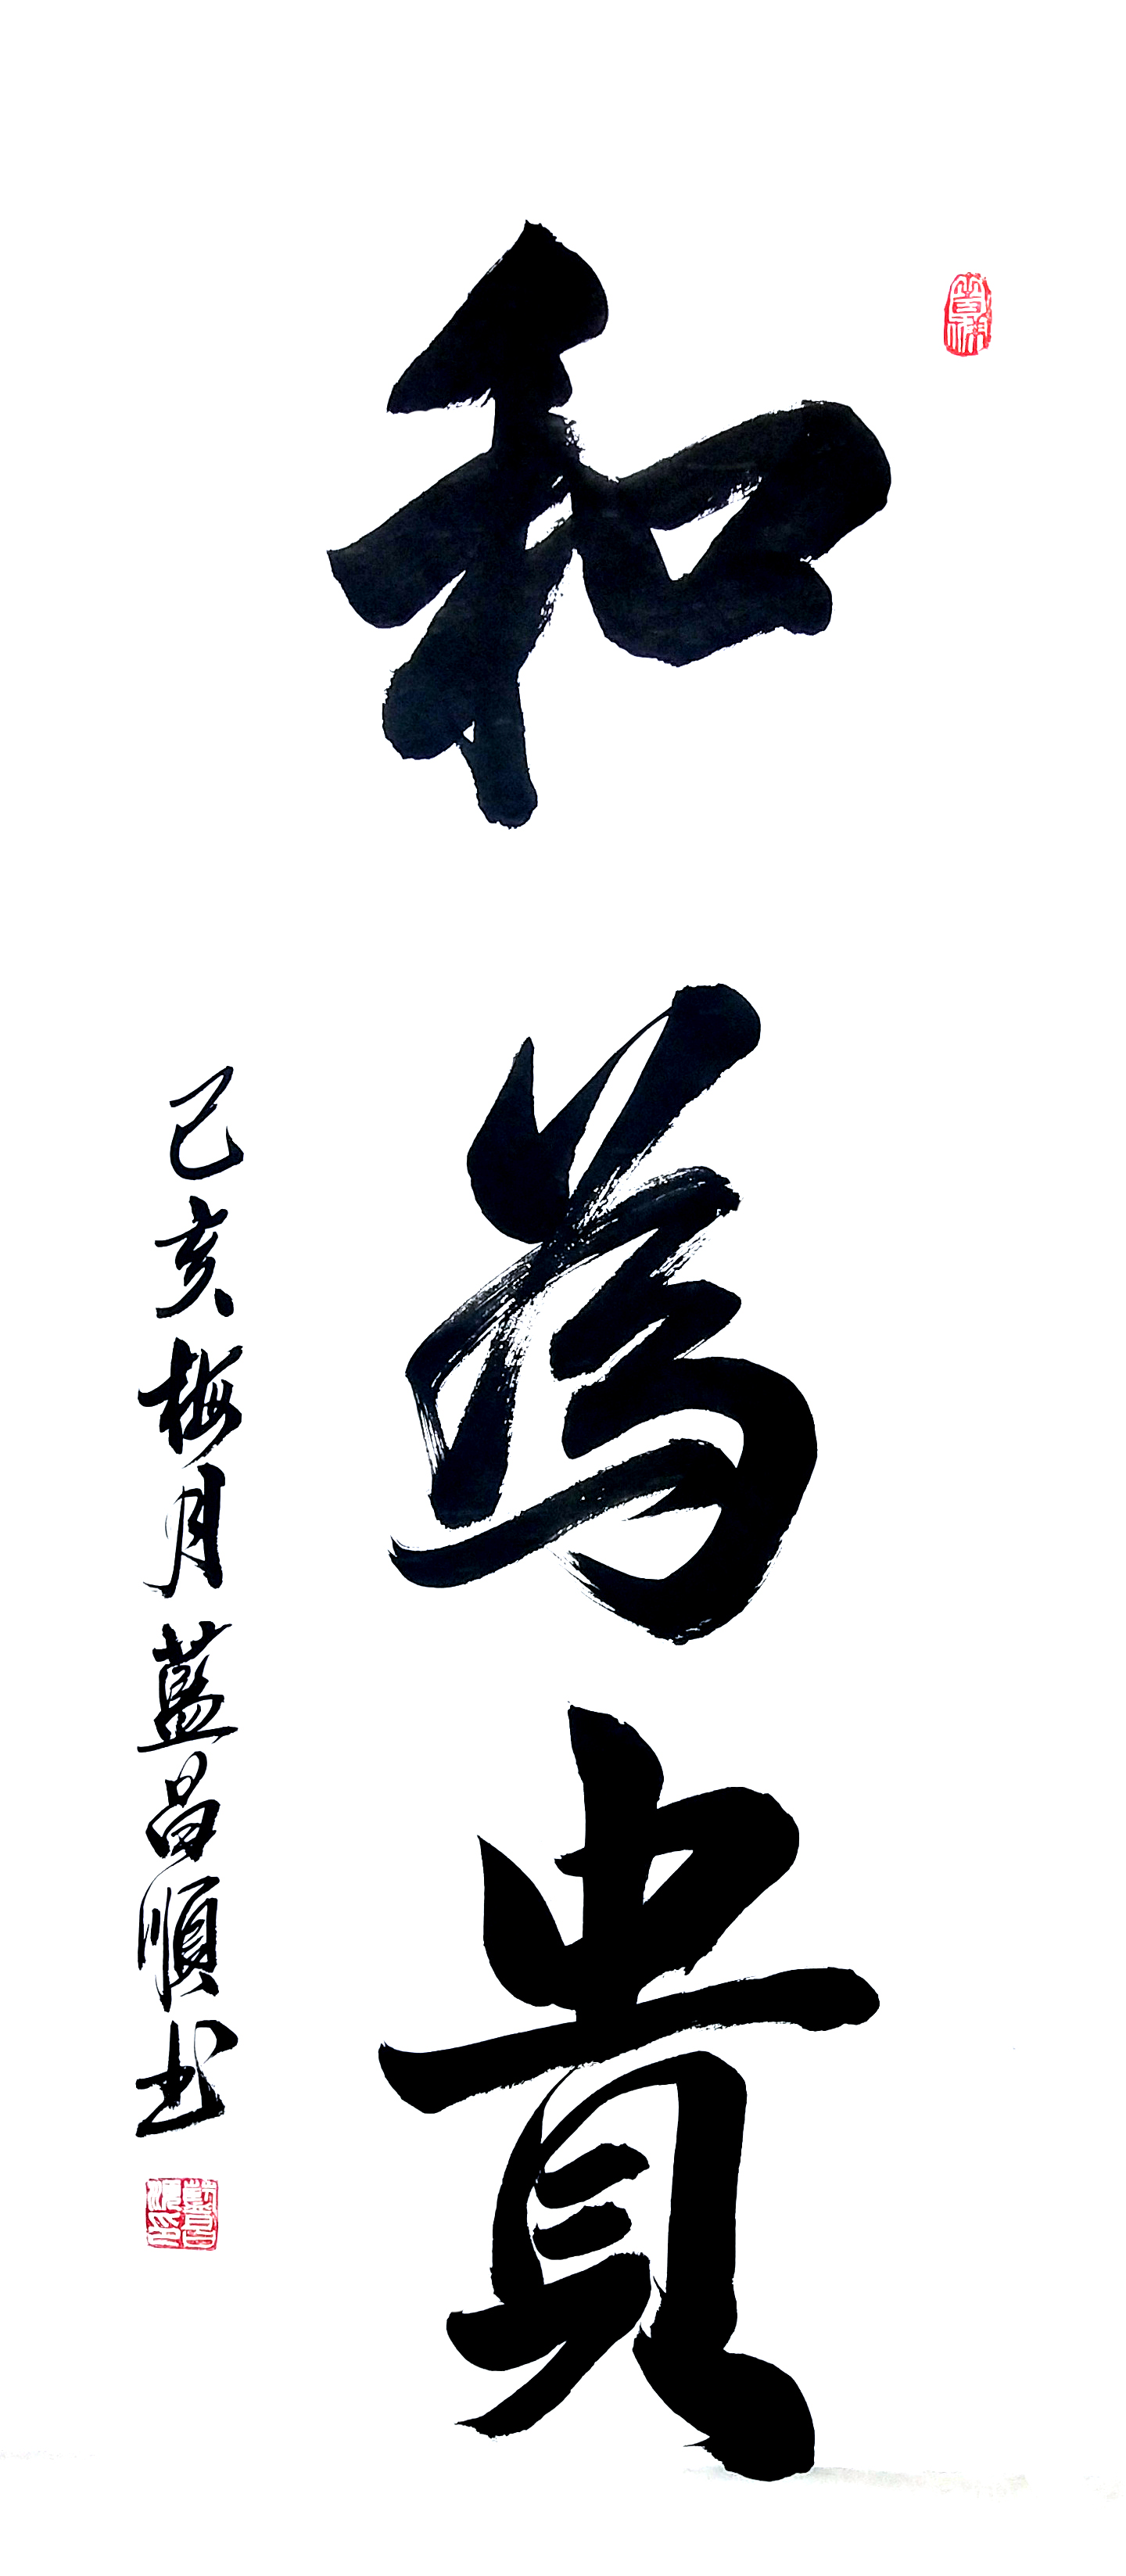 和為貴
己亥梅月藍昌順书